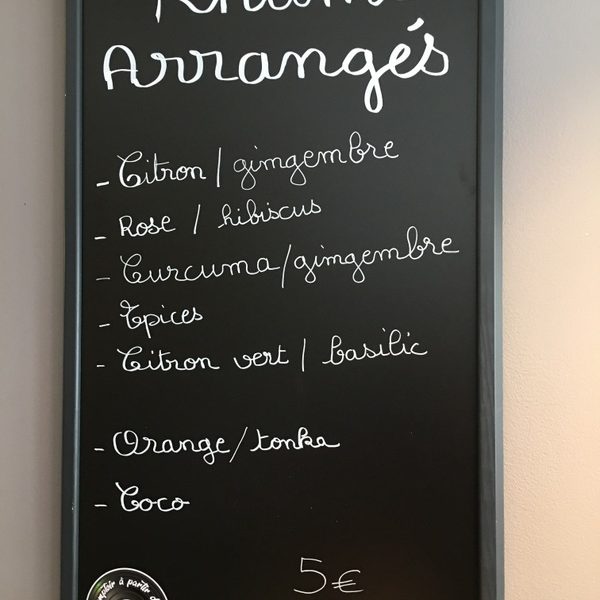 Rhums
Arrangés
- Citron / gimgembre
- Rose / hibiscus
- Curcuma / gimgembre
- Epices
- Citron vert / basilic
- Orange / tonka
- Coco
5€
à partir d